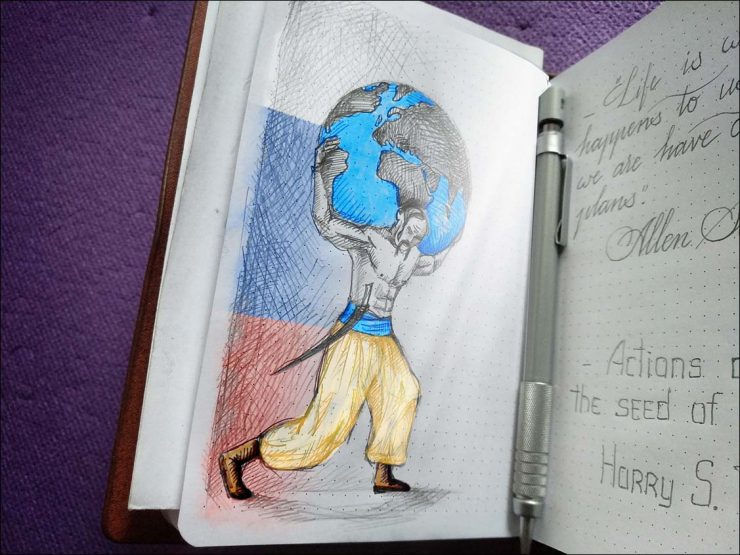 - "Life is
happens to
we are have
plans".
Allen
- Actions
the seed of
Harry S.